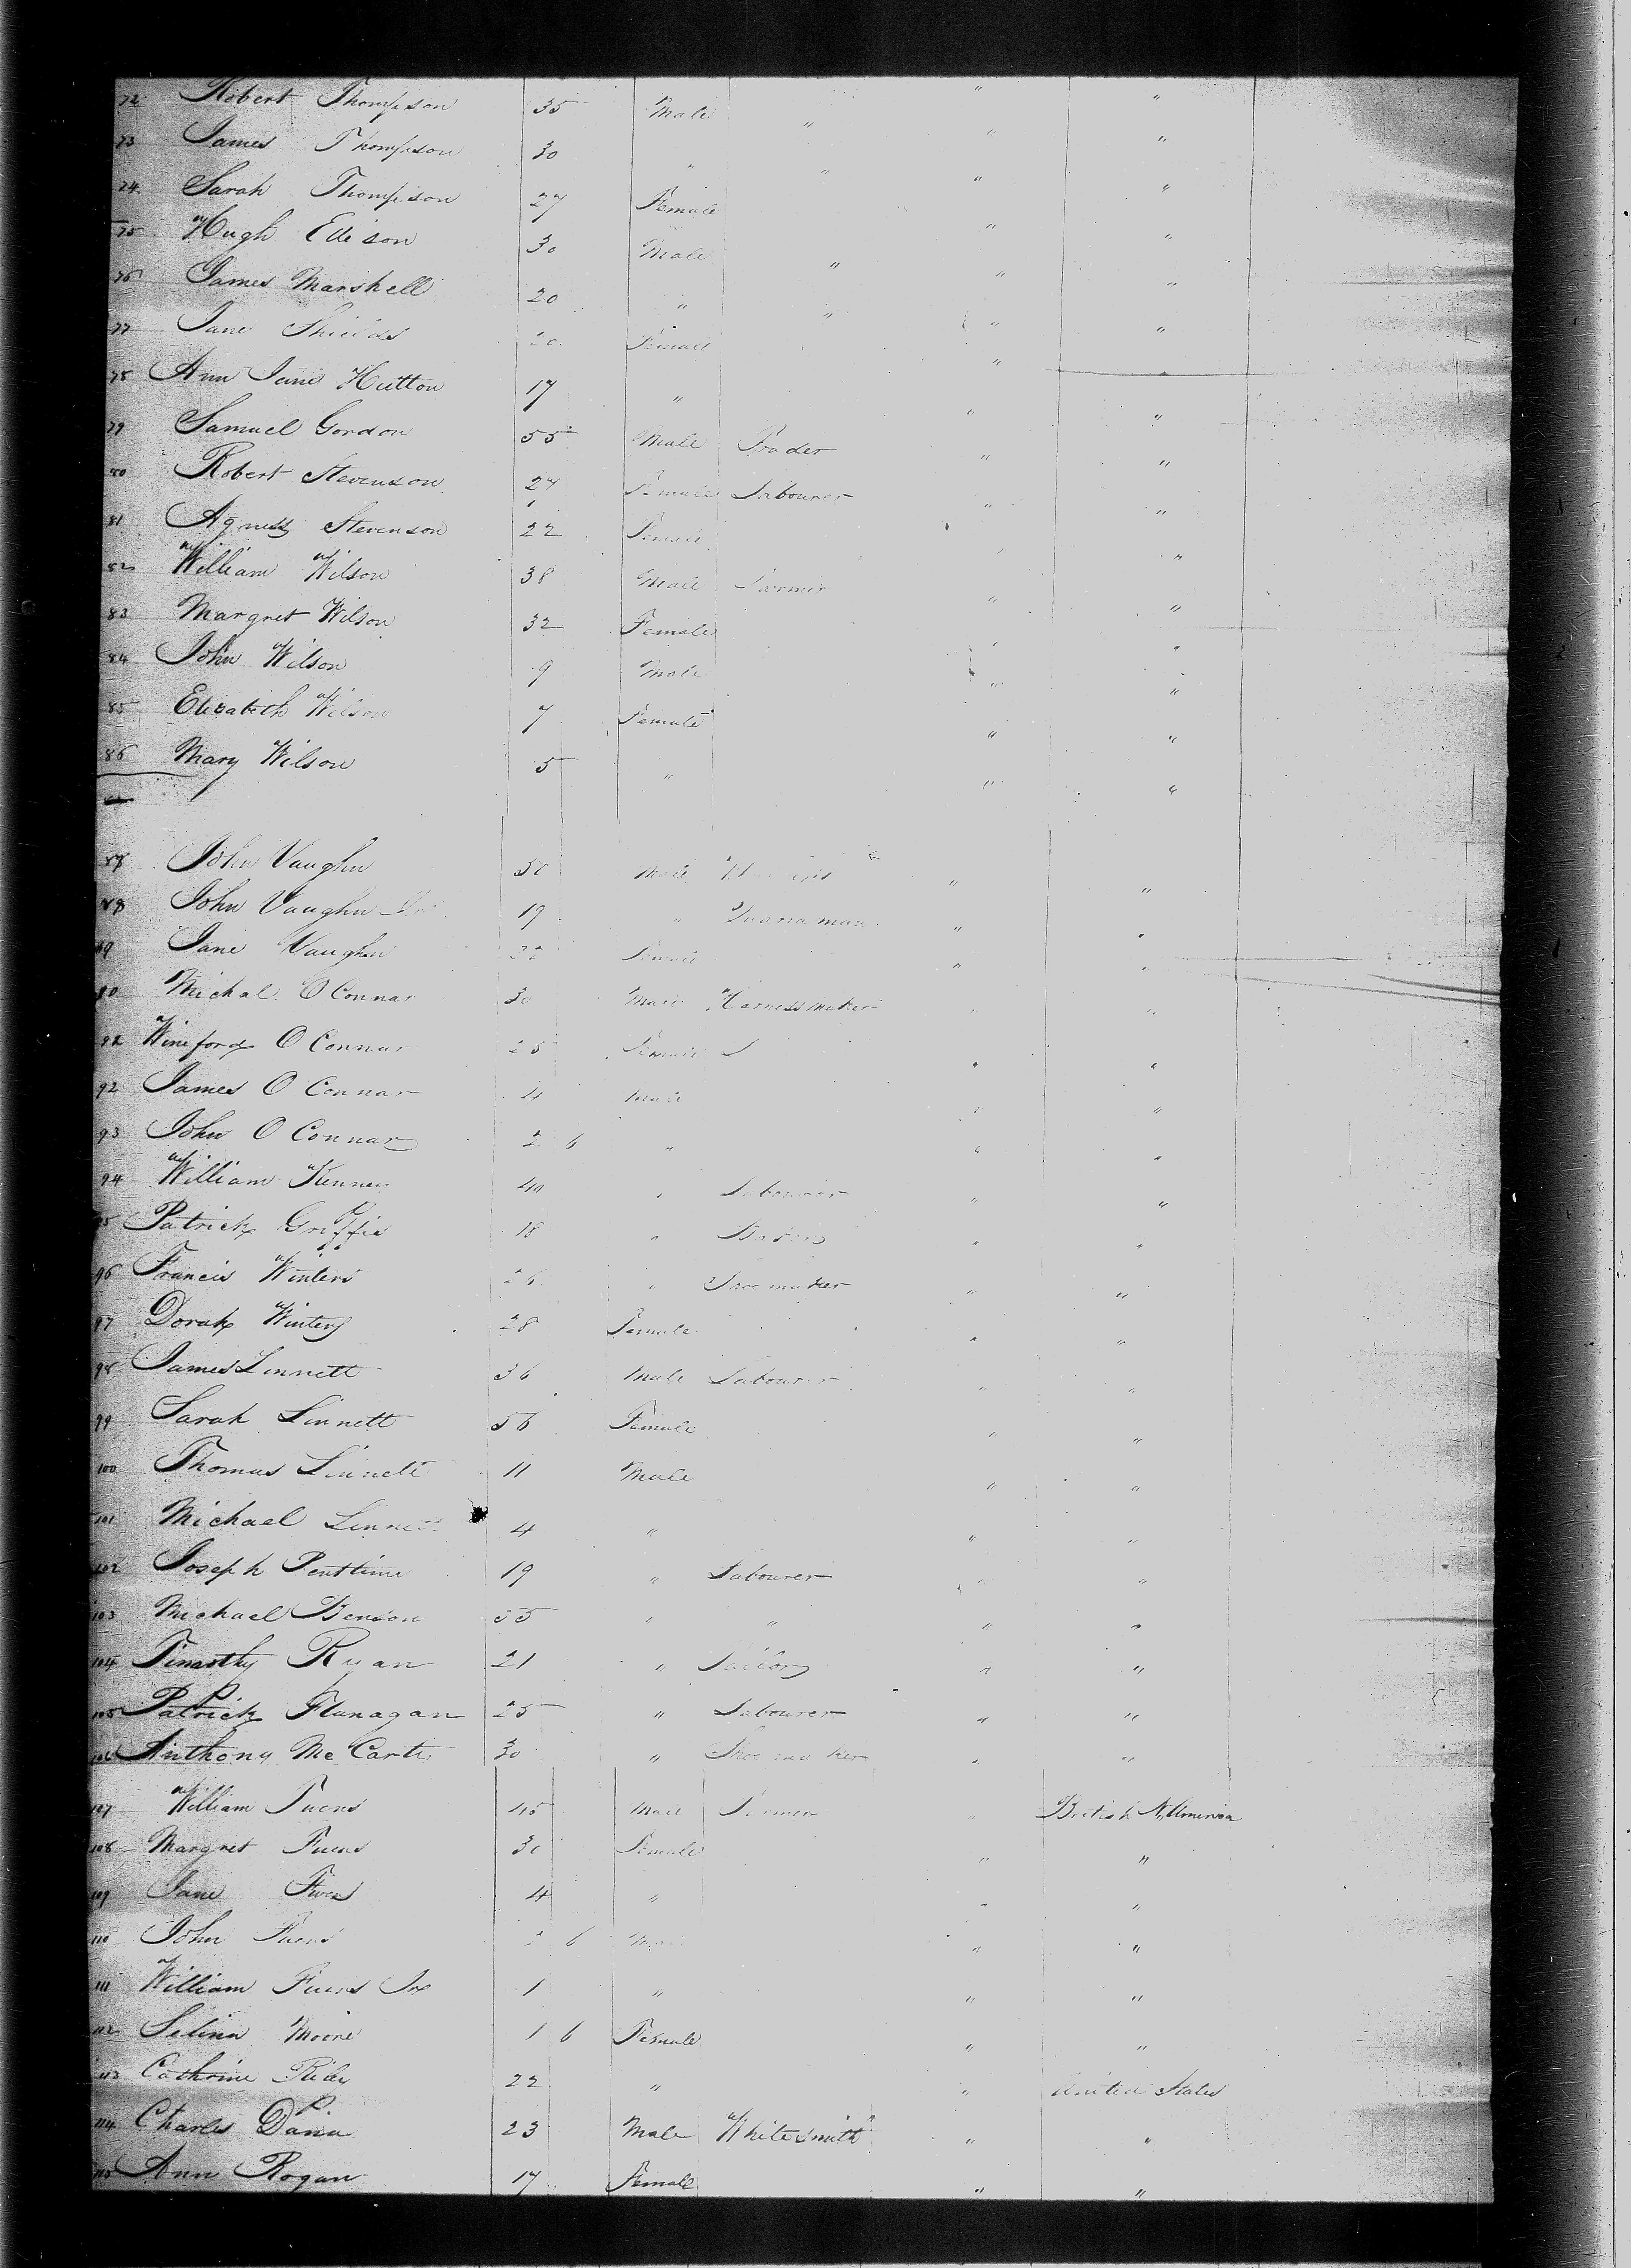 72 Robert Thompson 35 Male " " "
73 James Thompson 30 " " " "
74 Sarah Thompson 27 Female " "
75 Hugh Ellison 30 Male " " "
76 James Marshell 20 " " " "
77 Jane Shields 20 Female " "
78 Ann Jane Hutton 17 " " "
79 Samuel Gordon 55 Male Trader " "
80 Robert Stevenson 27 Female Labourer " "
81 Agness Stevenson 22 Female " "
82 William Wilson 38 Male Farmer " "
83 Margret Wilson 32 Female " "
84 John Wilson 9 Male " "
85 Elizabeth Wilson 7 Female " "
86 Mary Wilson 5 " " "
John Vaughn 50 Male " "
John Vaughn 19 " " "
Jane Vaughn Female " "
Michal O Connar 30 Male Harness maker " "
O Connar 25 Female " "
92 James O Connar 4 Male " "
93 John O Connar 2 6 " " "
94 William 40 " Labourer " "
Patrick Griffie 18 " " "
96 Francis Winters 26 " Shoe maker " "
97 Winters 28 Female " "
98 James Linnett 36 Male Labourer " "
99 Sarah Linnett 36 Female " "
100 Thomas Linnett 11 Male " "
101 Michael Linnett 4 " " "
102 Joseph 19 " Labourer " "
103 Michael Benson 55 " " " "
104 Timothy Ryan 21 " Tailor " "
105 Patrick Flanagan 25 " Labourer " "
106 Anthony Mc Carty 30 " Shoe maker " "
107 William 45 Male Farmer " British N. America
108 Margret 30 Female " "
109 Jane 4 " " "
110 John 2 6 Male " "
111 William Jr 1 " " "
112 Selina Moore 1 6 Female " "
113 Cathrine 22 " " United States
114 Charles 23 Male Whitesmith " "
115 Ann Rogan 17 Female " "